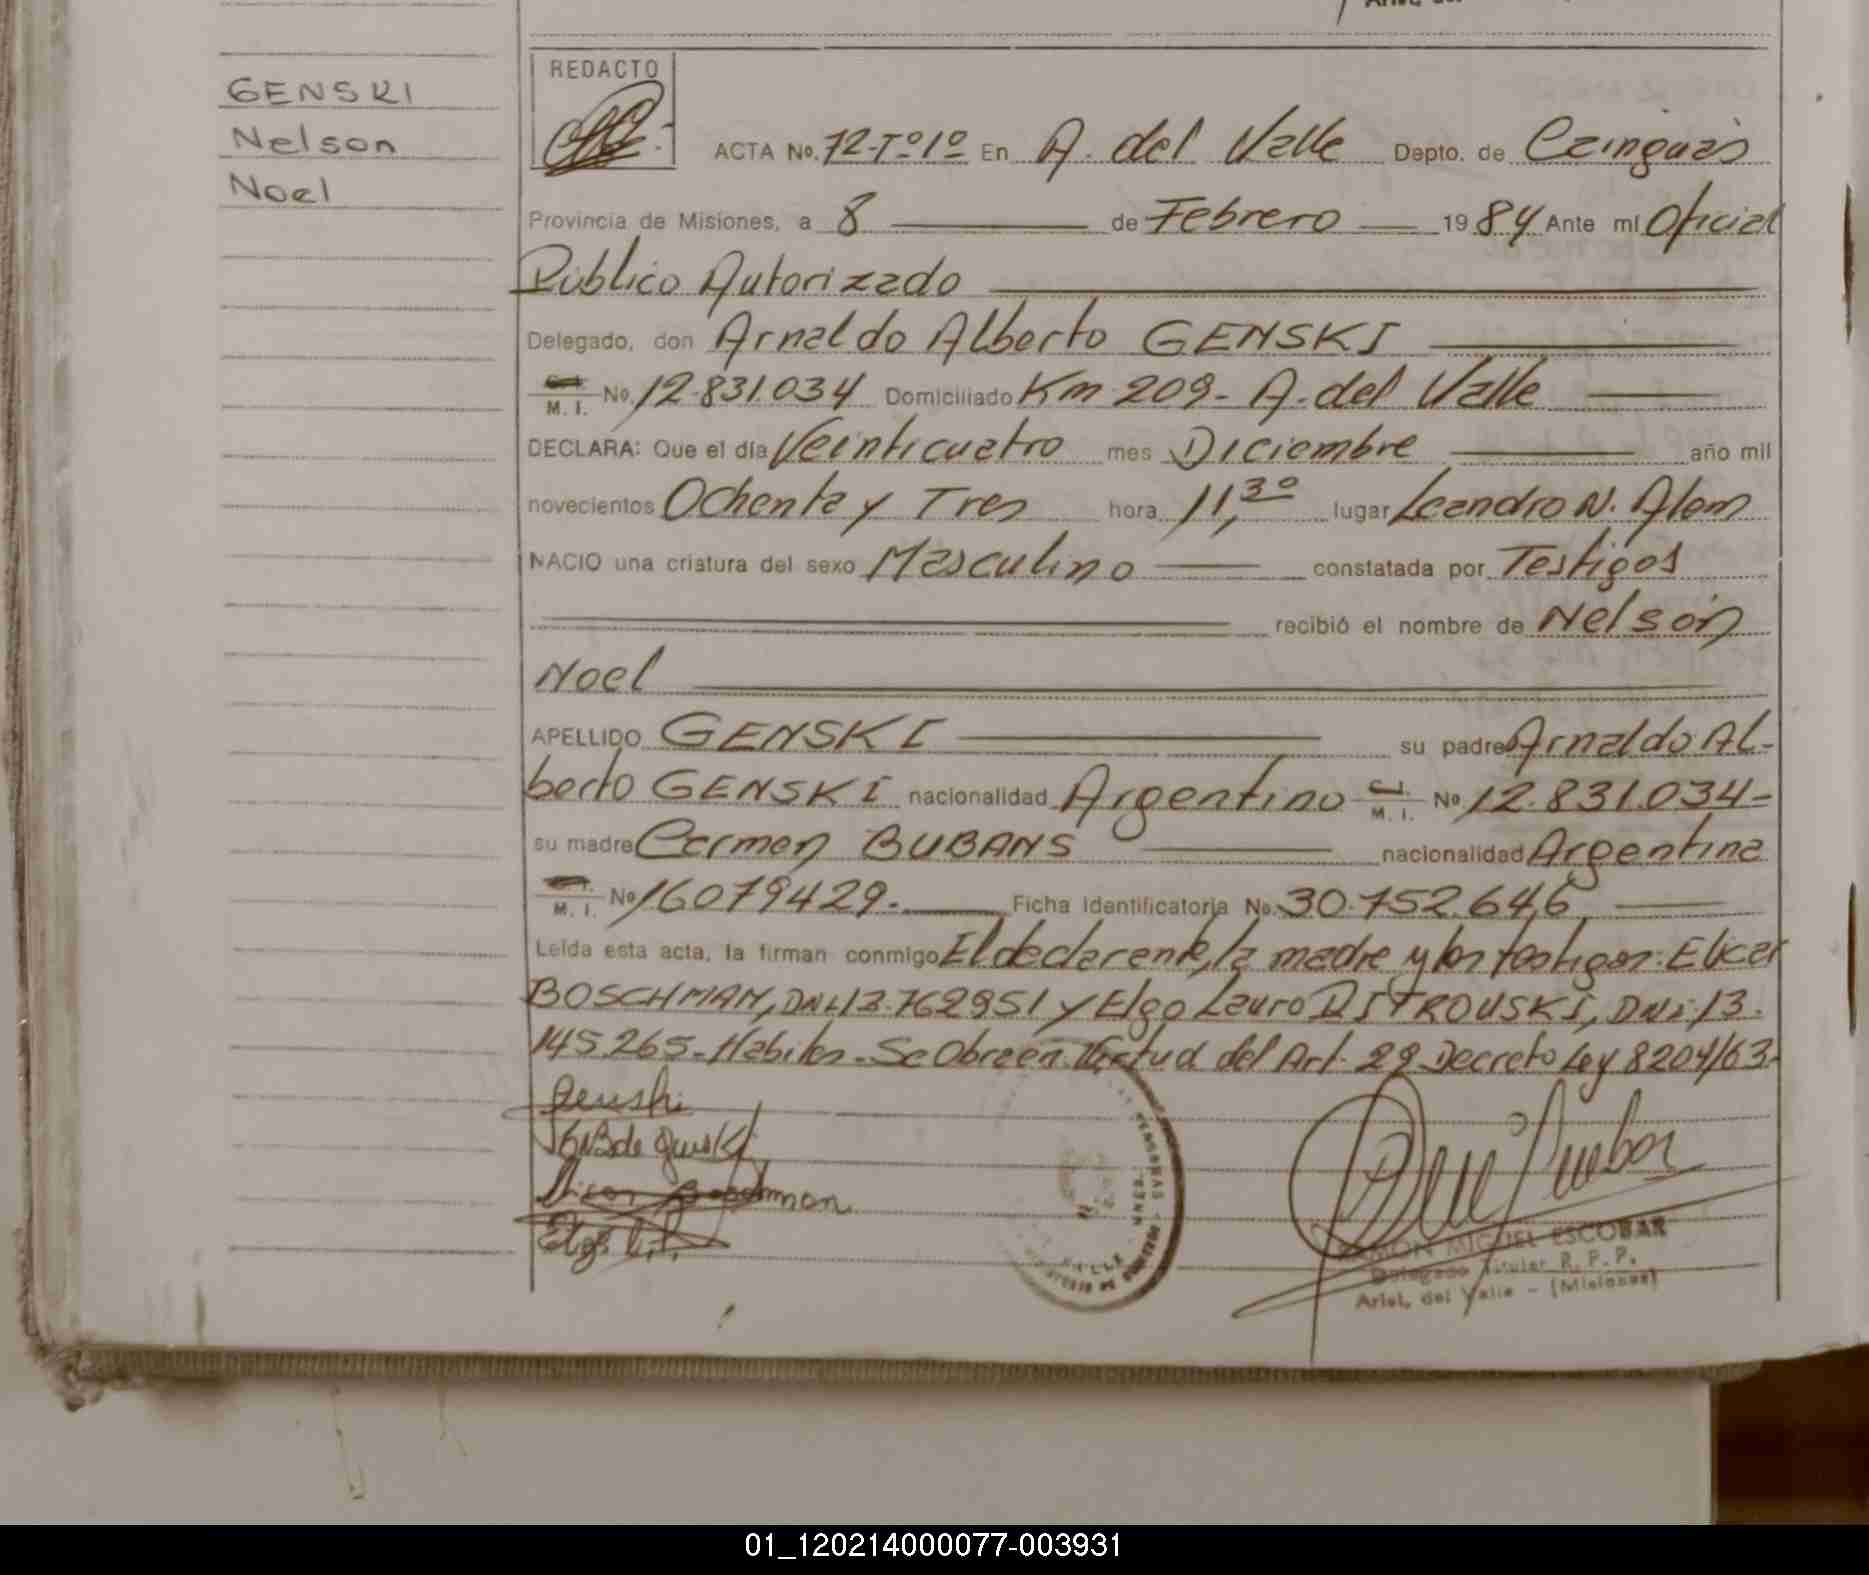 GENSKI
Nelson
Noel
REDACTO
ACTA No. 72-Tº1º En A. del Valle Depto. de Cainguás
Provincia de Misiones, a 8 de Febrero 1984 Ante mi Oficial
Público Autorizado
Delegado, don Arnaldo Alberto GENSKI
M. I. No. 12.831.034 Domiciliado Km 209- A. del Valle
DECLARA: Que el día Veinticuatro mes Diciembre año mil
novecientos Ochenta y Tres hora 11,30 lugar Leandro N. Alem
NACIO una criatura del sexo Masculino constatada por Testigos
recibió el nombre de Nelson
Noel
APELLIDO GENSKI su padre Arnaldo Al-
berto GENSKI nacionalidad Argentino C.I. M. I. No 12.831.034-
su madre Carmen BUBANS nacionalidad Argentina
M. I. No 16079429.- Ficha Identificatoria No. 30.752.646
Leída esta acta, la firman conmigo El declarante, la madre y los testigos: Elicar
BOSCHMAN, DNI:13.762951 y Elgo Lauro DITROUSKI, DNI:13.
145.265- Hábiles. Se Obra en Virtud del Art. 29 Decreto Ley 8204/63-
Genski
de Genski
RAMON MIGUEL ESCOBAR
Delegado Titular R. P. P.
Arist. del Valle - (Misiones)
01_120214000077-003931